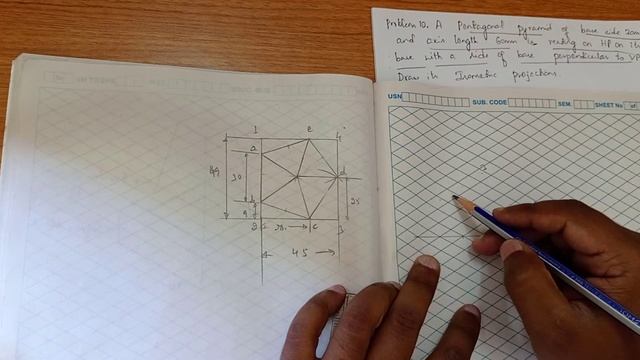 Problem 10. A Pentagonal pyramid of base side 30m
and axis length 60mm is resting on HP on its
base with a side of base perpendicular to VP
Draw its Isometric projections.
USN SUB. CODE SEM. SHEET No
1 e 4
a
30 d 25
b
9
2 c 3
45